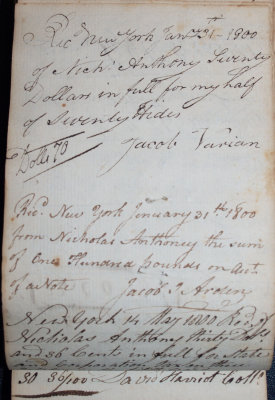 Rec New York Jany 31 - 1800
of Nich: Anthony Seventy
Dollars in full for my half
of Seventy Hides
Dolls 70 Jacob Varian
Recd. New York January 31th 1800
from Nicholas Anthoney the sum
of One Hundred pounds on Act.
of a Note Jacob Arden
New York 14 May 1800 Recd of
Nicholas Anthony thirty Dolls.
and 36 Cents in full for State
and
30 36/100 David Marriot Collr.